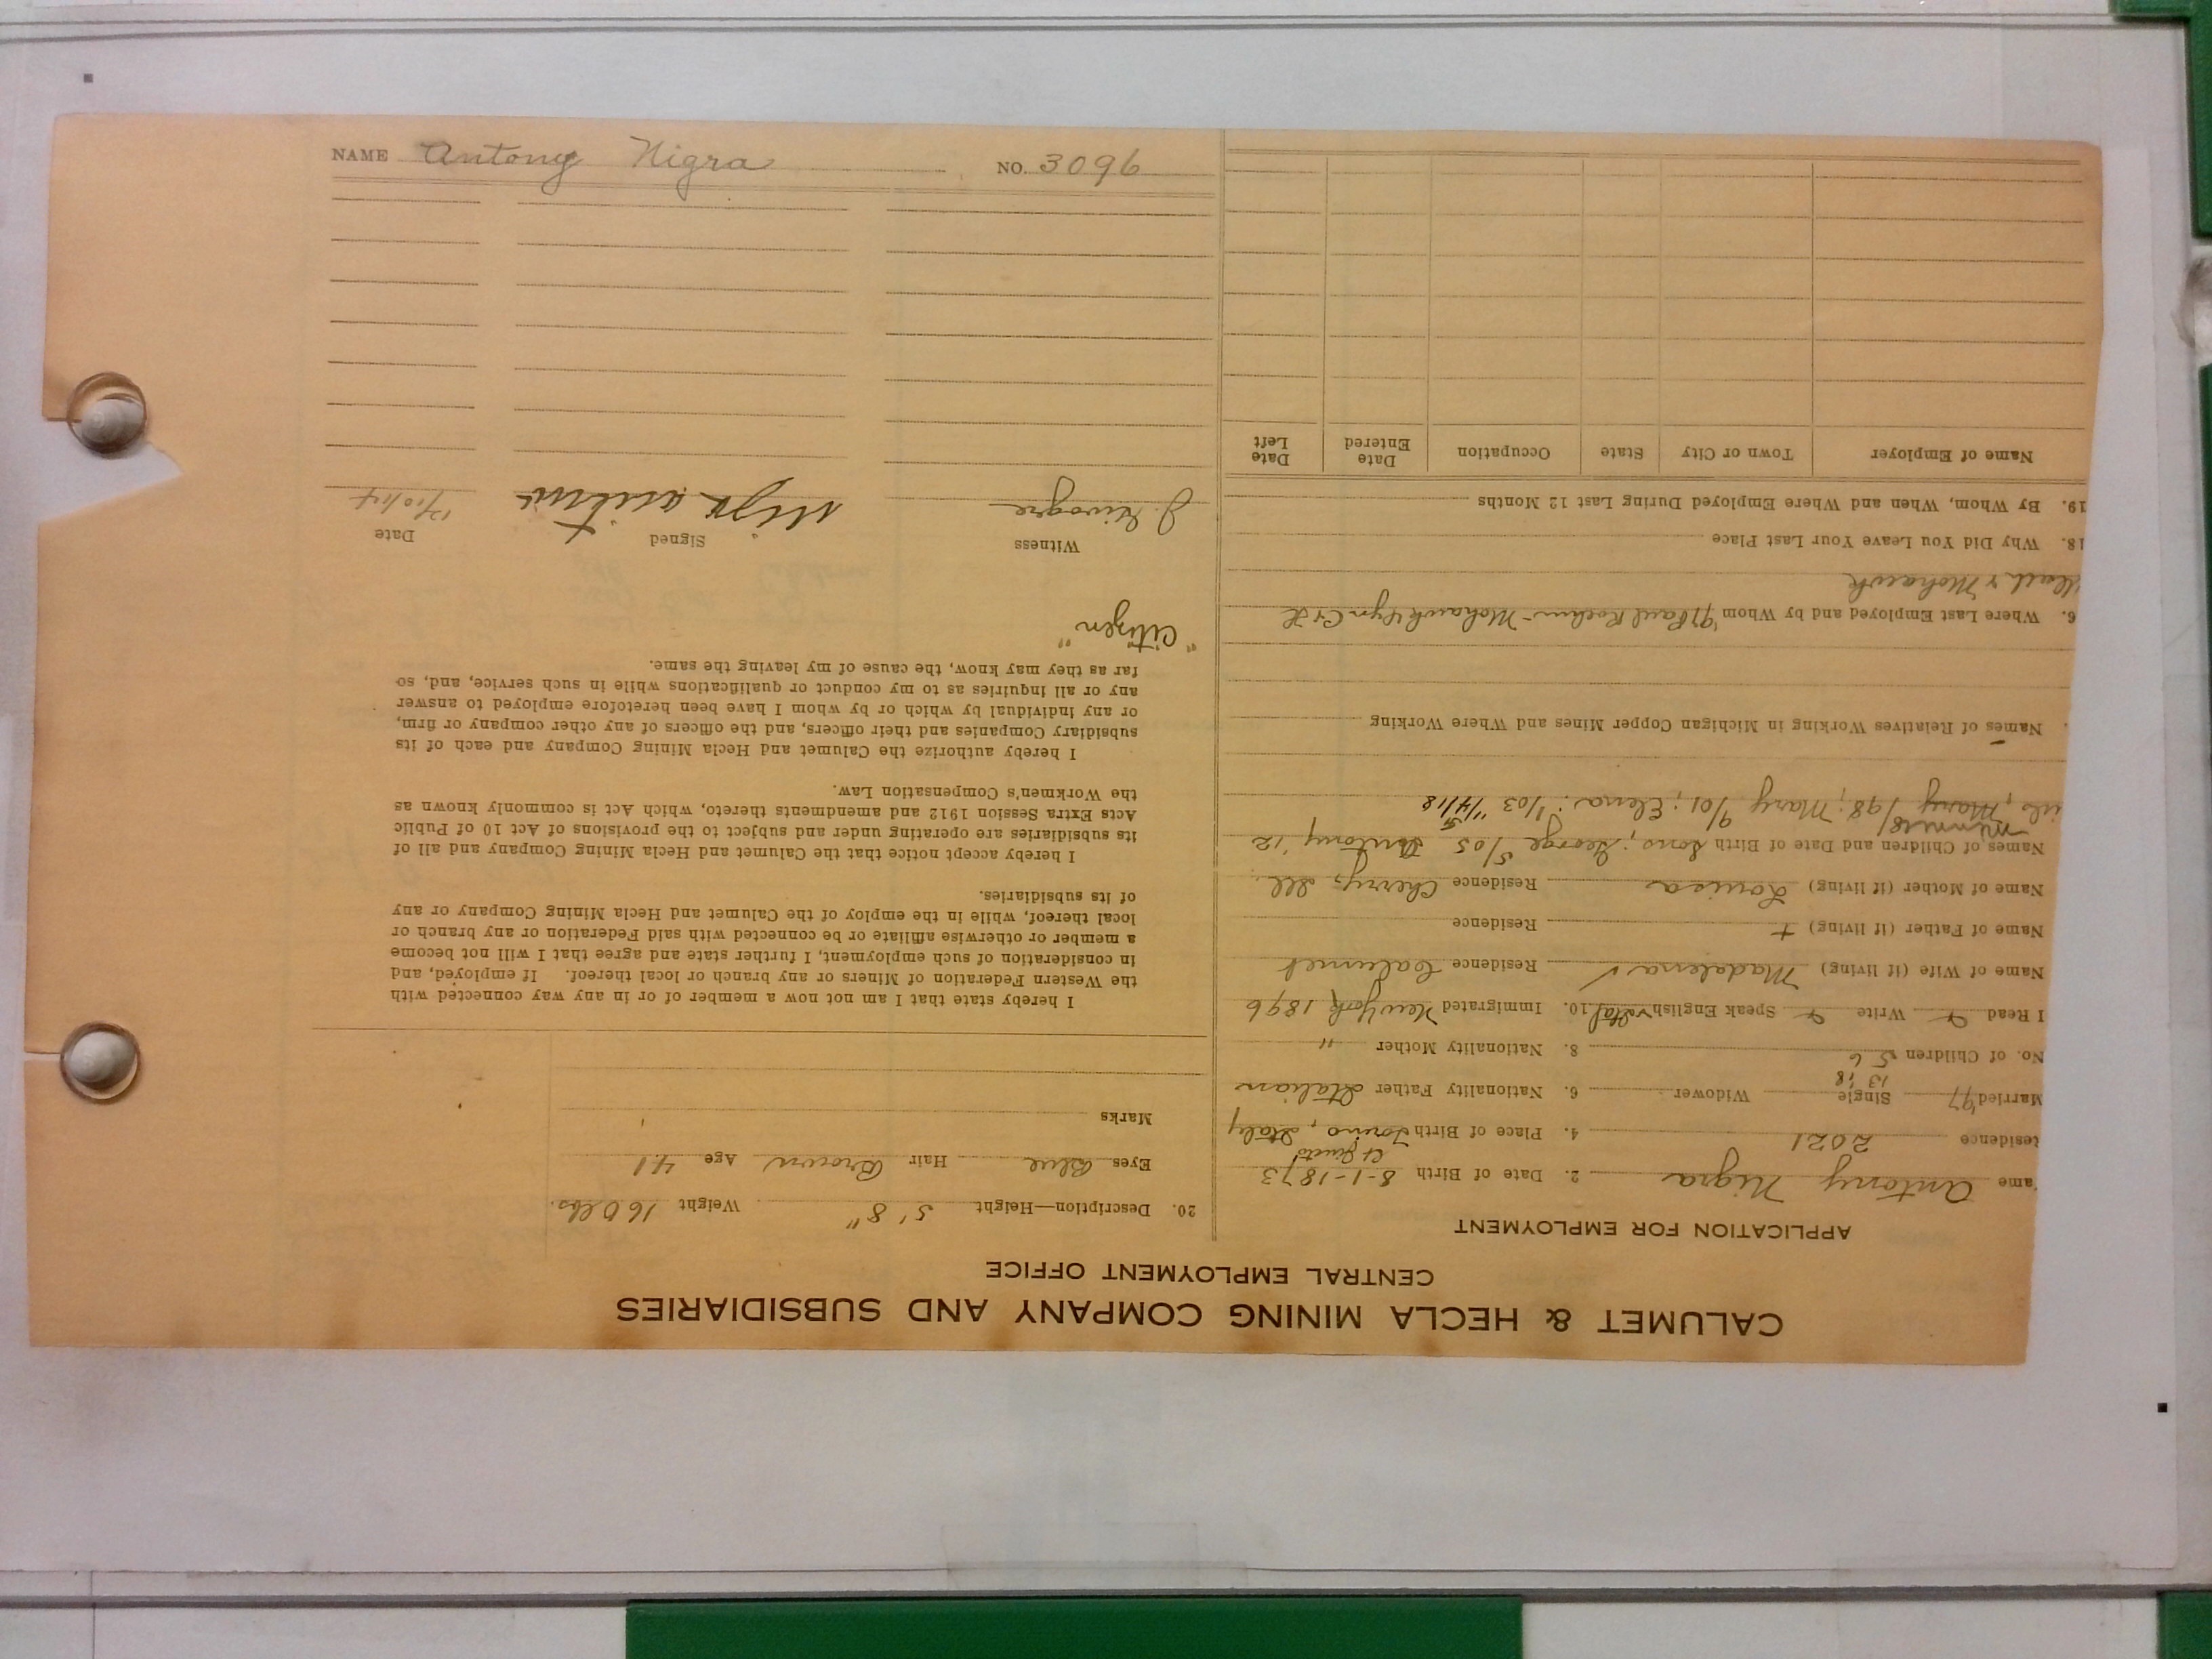 NAME Antony Nigra NO. 3096
CALUMET & HECLA MINING COMPANY AND SUBSIDIARIES
CENTRAL EMPLOYMENT OFFICE
APPLICATION FOR EMPLOYMENT
ame Antony Nigra 2. Date of Birth 8-1-1873
Residence 2021 4. Place of Birth Torino, Italy
Married '97 Single Widower 6. Nationality Father Italian
13 '18
No. of Children 5 6 8. Nationality Mother "
I Read Write Speak English 10. Immigrated New York 1896
Name of Wife (if living) Madalena Residence Calumet
Name of Father (if living) + Residence
Name of Mother (if living) Louisa Residence Cherry, Ill.
Names of Children and Date of Birth Sons; George 5/05 Antony '12
Minnie
Mary /98; Mary 9/01; Elena: 1/03 "/4/18
Names of Relatives Working in Michigan Copper Mines and Where Working
6. Where Last Employed and by Whom '97 Paul Roehm - Mohawk Lyn C+H
& Mohawk
18. Why Did You Leave Your Last Place
19. By Whom, When and Where Employed During Last 12 Months
Name of Employer Town or City State Occupation Date Entered Date Left
20. Description—Height 5' 8" Weight 160 lbs.
Eyes Blue Hair Brown Age 41
Marks
I hereby state that I am not now a member of or in any way connected with
the Western Federation of Miners or any branch or local thereof. If employed, and
in consideration of such employment, I further state and agree that I will not become
a member or otherwise affiliate or be connected with said Federation or any branch or
local thereof, while in the employ of the Calumet and Hecla Mining Company or any
of its subsidiaries.
I hereby accept notice that the Calumet and Hecla Mining Company and all of
its subsidiaries are operating under and subject to the provisions of Act 10 of Public
Acts Extra Session 1912 and amendments thereto, which Act is commonly known as
the Workmen's Compensation Law.
I hereby authorize the Calumet and Hecla Mining Company and each of its
subsidiary Companies and their officers, and the officers of any other company or firm,
or any individual by which or by whom I have been heretofore employed to answer
any or all inquiries as to my conduct or qualifications while in such service, and, so
far as they may know, the cause of my leaving the same.
"Citizen"
Witness Signed Date